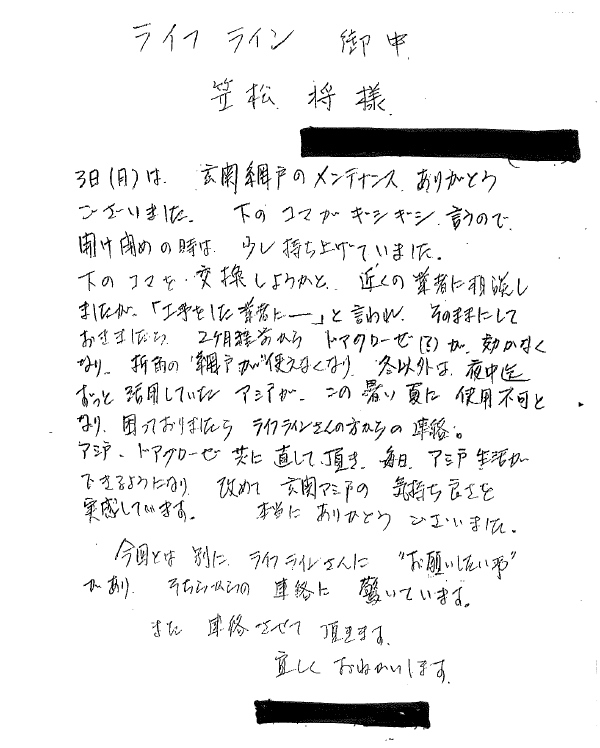 ライフライン 御中
笠松 将様
3日(月)は、玄関網戸のメンテナンス、ありがとう
ございました。 下のコマがギシギシ言うので、
開け閉めの時は、少し持ち上げていました。
下のコマを、交換しようかと、近くの業者に相談し
ましたが、「工事をした業者に―」と言われ、そのままにして
おきましたら、2ヶ月程前からドアクローゼ(?)が、効かなく
なり、折角の網戸が使えなくなり、冬以外は、夜中迄
ずっと活用していたアミ戸が、この暑い夏に使用不可と
なり、困っておりましたらライフラインさんの方からの連絡。
アミ戸、ドアクローゼ共に直して頂き、毎日、アミ戸生活が
できるようになり、改めて玄関アミ戸の気持ち良さを
実感しています。 本当にありがとうございました。
今回とは別に、ライフラインさんに"お願いしたい事"
があり、そちらからの連絡に驚いています。
また連絡させて頂きます。
宜しくおねがいします。